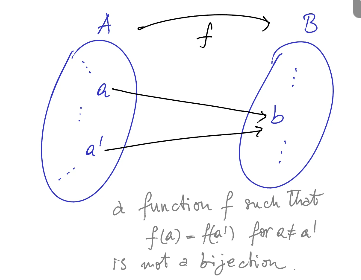 A f B
a
b
a'
a function f such that
f(a) = f(a') for a ≠ a'
is not a bijection.